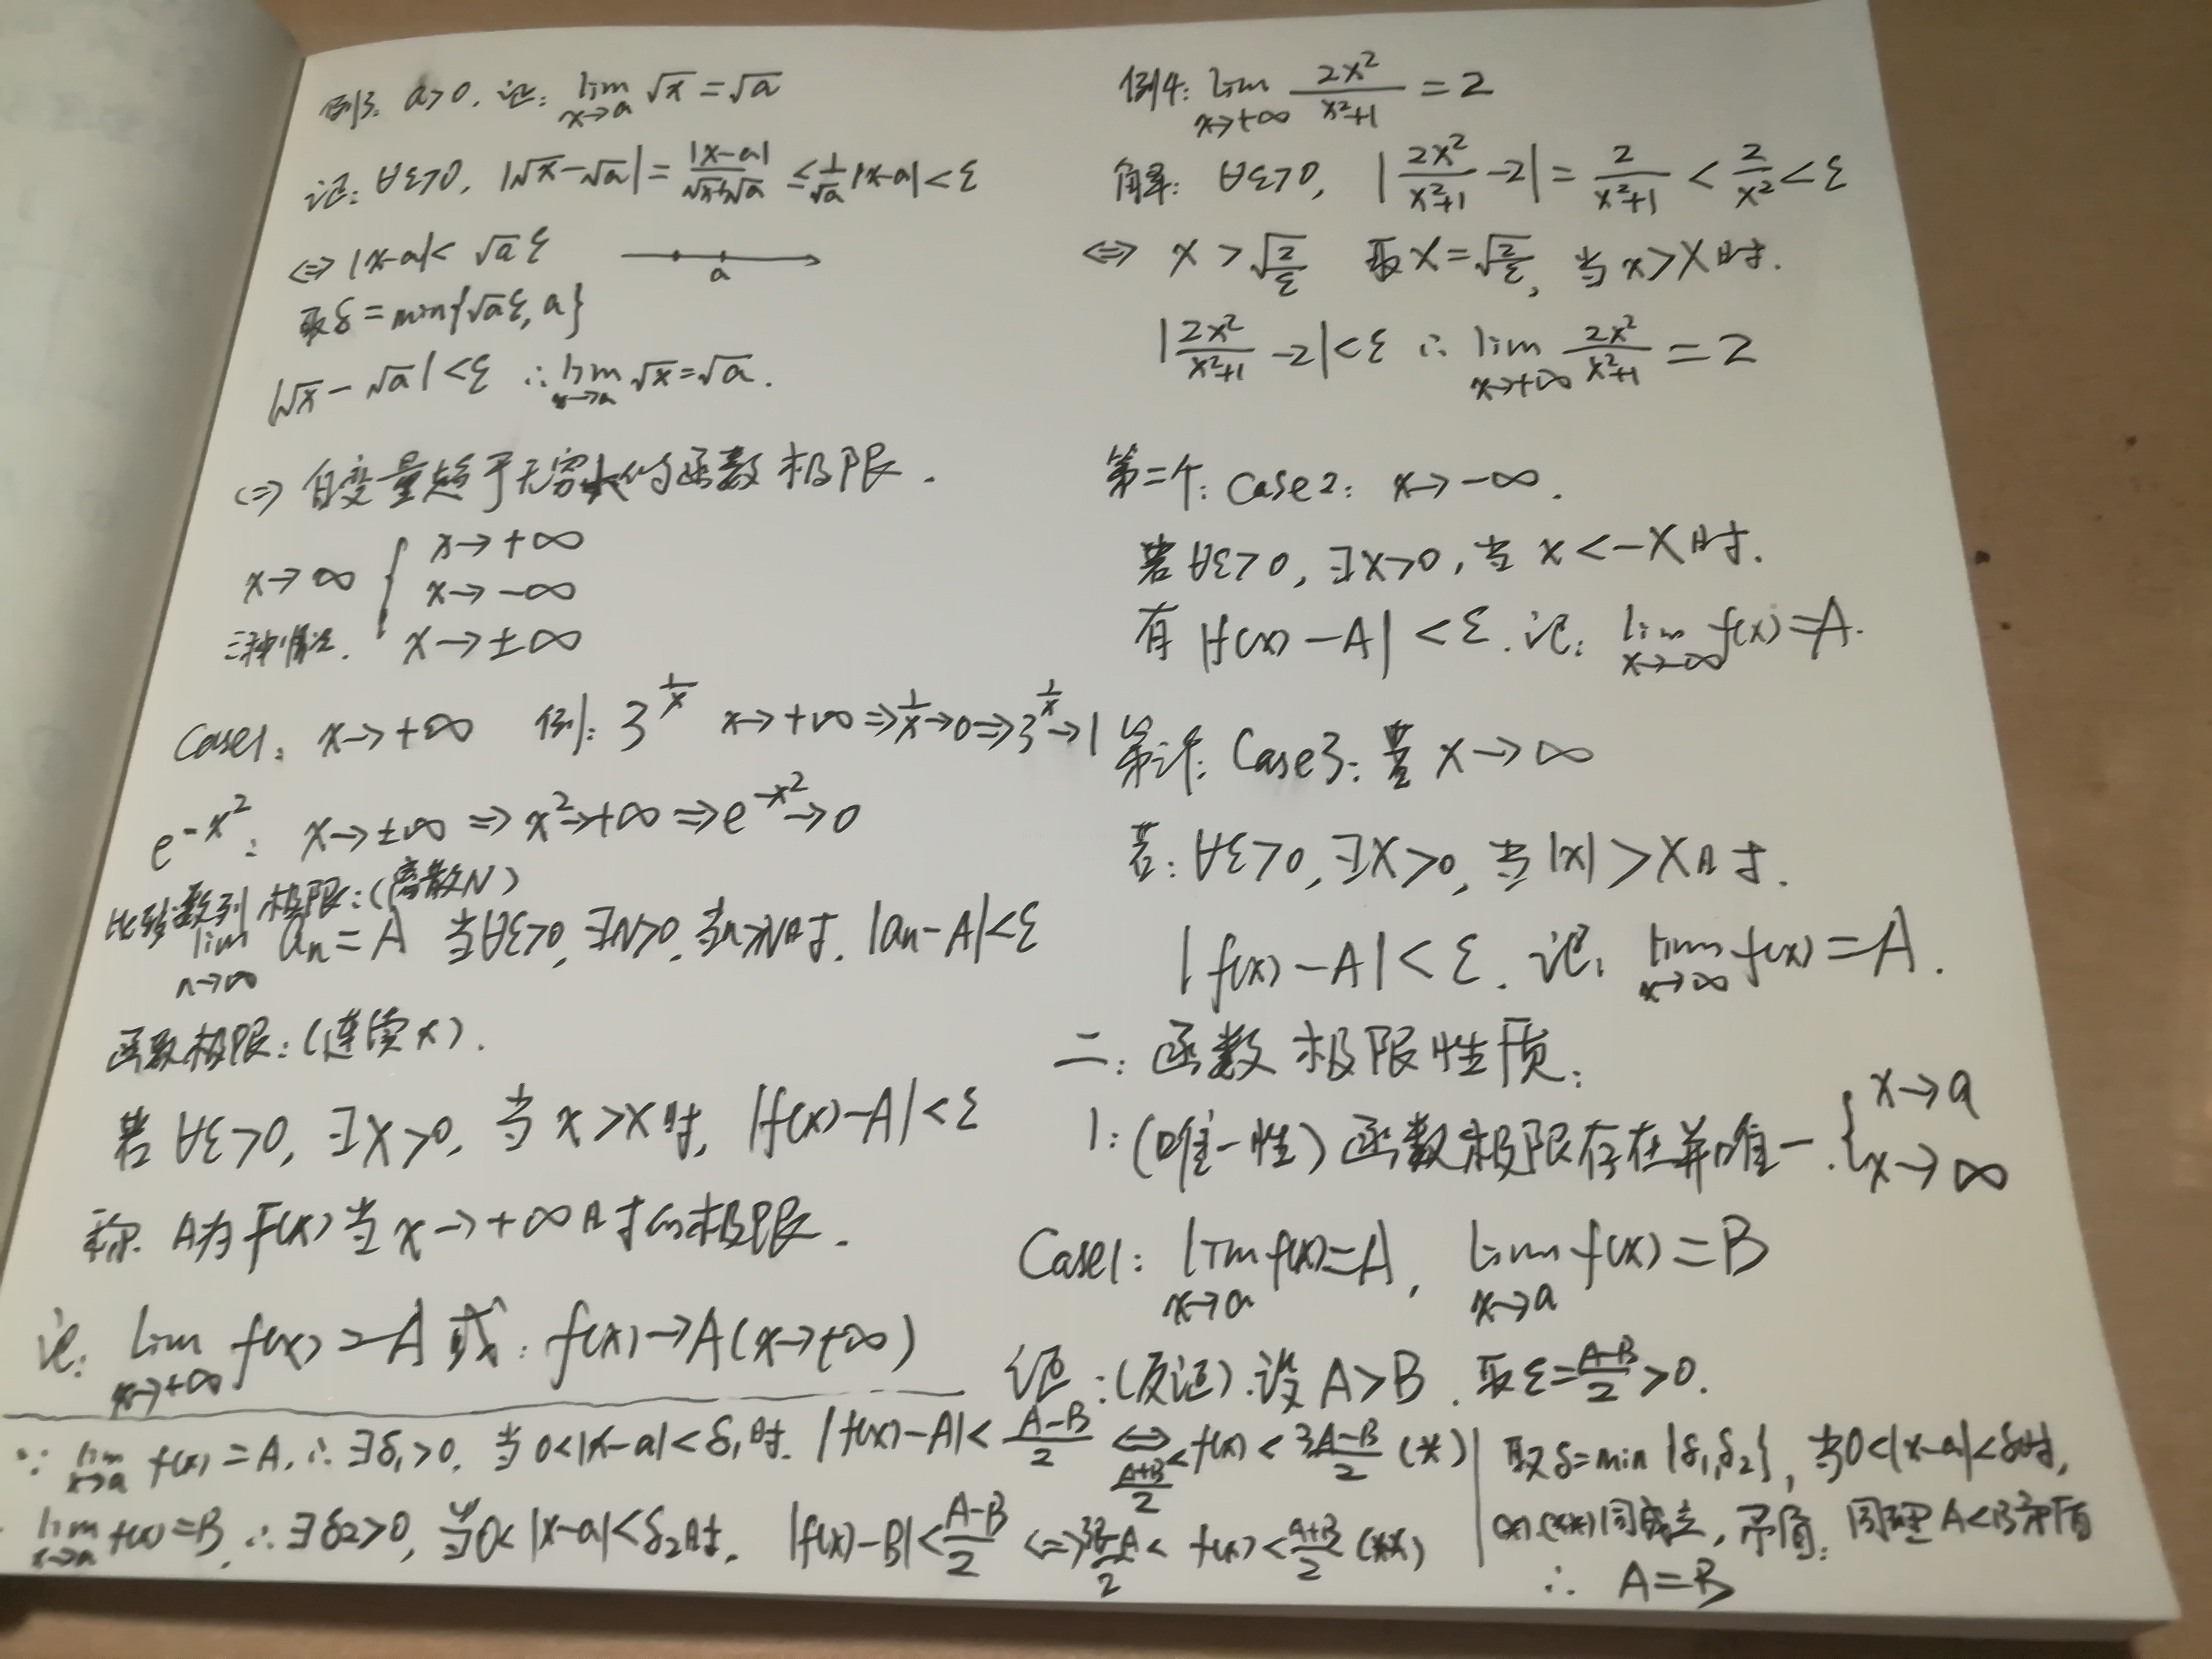 例3. a>0. 证: lim_{x→a} √x = √a
证: ∀ε>0, |√x-√a| = |x-a|/(√x+√a) ≤ 1/√a |x-a| < ε
⇔ |x-a| < √a ε
a
取δ = min{√a ε, a}
|√x - √a| < ε ∴ lim_{x→a} √x = √a.
(=) 自变量趋于无穷大的函数极限.
x→∞ { x→+∞
x→-∞
三种情况. x→±∞
Case1: x→+∞ 例: 3^{1/x} x→+∞ ⇒ 1/x→0 ⇒ 3^{1/x}→1
e^{-x²}: x→±∞ ⇒ x²→+∞ ⇒ e^{-x²}→0
比较数列极限: (离散N)
lim_{n→∞} an = A 当∀ε>0, ∃N>0, 当n>N时. |an-A|<ε
函数极限: (连续x).
若∀ε>0, ∃X>0, 当x>X时, |f(x)-A|<ε
称. A为f(x)当x→+∞时的极限.
记: lim_{x→+∞} f(x) = A 或: f(x)→A(x→+∞)
例4: lim_{x→+∞} 2x²/(x²+1) = 2
解: ∀ε>0, |2x²/(x²+1) - 2| = 2/(x²+1) < 2/x² < ε
⇔ x > √(2/ε) 取X = √(2/ε), 当x>X时.
|2x²/(x²+1) - 2| < ε ∴ lim_{x→+∞} 2x²/(x²+1) = 2
第二个: Case2: x→-∞.
若∀ε>0, ∃X>0, 当x<-X时.
有|f(x)-A|<ε. 记: lim_{x→-∞} f(x)=A.
Case3: x→∞
若: ∀ε>0, ∃X>0, 当|x|>X时.
|f(x)-A|<ε. 记: lim_{x→∞} f(x) = A.
二: 函数极限性质:
1: (唯一性) 函数极限存在并唯一. { x→a
x→∞
Case1: lim_{x→a} f(x)=A, lim_{x→a} f(x)=B
证: (反证). 设A>B. 取ε=(A-B)/2>0.
∵ lim_{x→a} f(x)=A, ∴ ∃δ₁>0, 当0<|x-a|<δ₁时. |f(x)-A|<(A-B)/2 ⇔ (A+B)/2 < f(x) < (3A-B)/2 (*)
lim_{x→a} f(x)=B, ∴ ∃δ2>0, 当0<|x-a|<δ₂时, |f(x)-B|<(A-B)/2 ⇔ (3B-A)/2 < f(x) < (A+B)/2 (**)
取δ=min{δ₁,δ₂}, 当0<|x-a|<δ时,
(*).(**)同成立, 矛盾. 同理A<B矛盾
∴ A=B